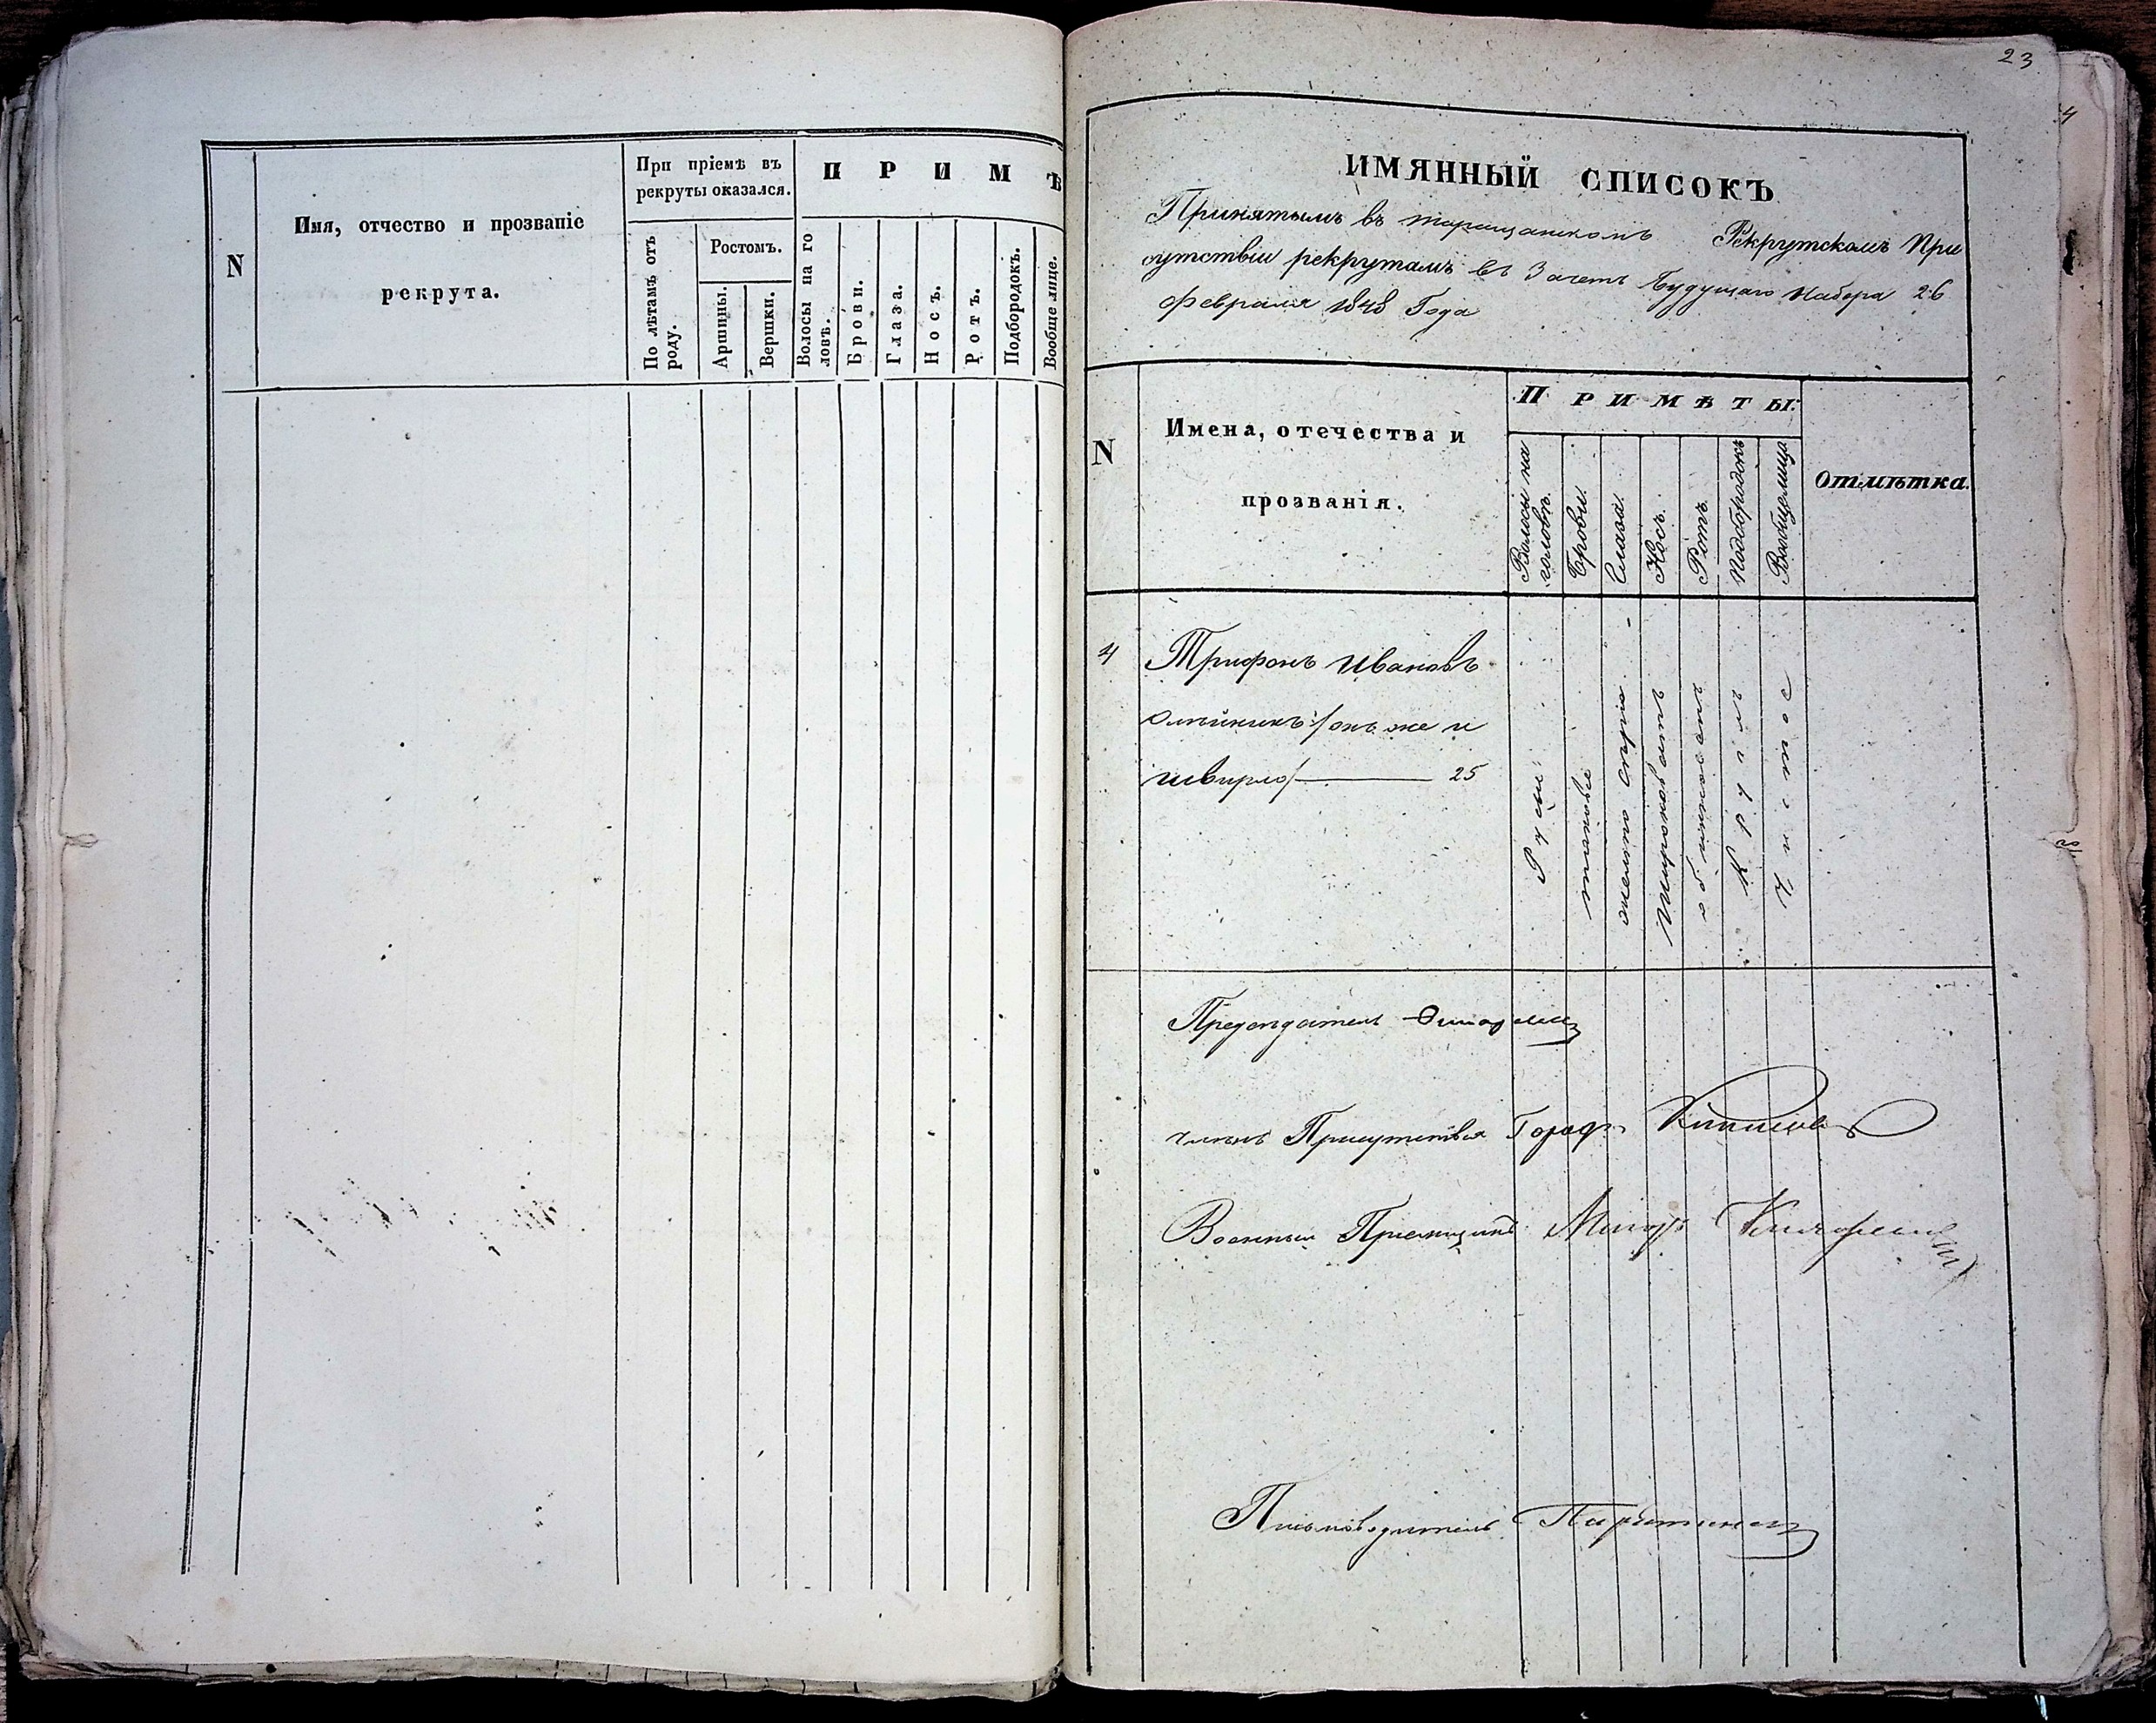 N
Имя, отчество и прозваніе
рекрута.
При пріемѣ въ
рекруты оказался.
По лѣтамъ отъ
роду.
Ростомъ.
Аршины.
Вершки.
П Р И М Ѣ
Волосы на го
ловѣ.
Брови.
Глаза.
Носъ.
Ротъ.
Подбородокъ.
Вообще лице.
23
ИМЯННЫЙ СПИСОКЪ
Принятымъ въ таращанскомъ Рекрутскомъ При
сутствіи рекрутамъ въ Зачетъ Будущаго Набора 26
февраля 1848 Года
N
Имена, отечества и
прозванія.
ПРИМѢТЫ:
Волосы на
головѣ.
Брови.
Глаза.
Носъ.
Ротъ.
Подбородокъ
Вообще лица
Отмѣтка.
4
Трифонъ Ивановъ
олѣйникъ /онъ же и
швирло/ 25
Русы
таковые
желто серые
Широковатъ
обыкновенъ
Круглъ
Чистое
Предсѣдатель
членъ Присутствія Город:
Военный Пріемщикъ Маіоръ
Письмоводитель
4